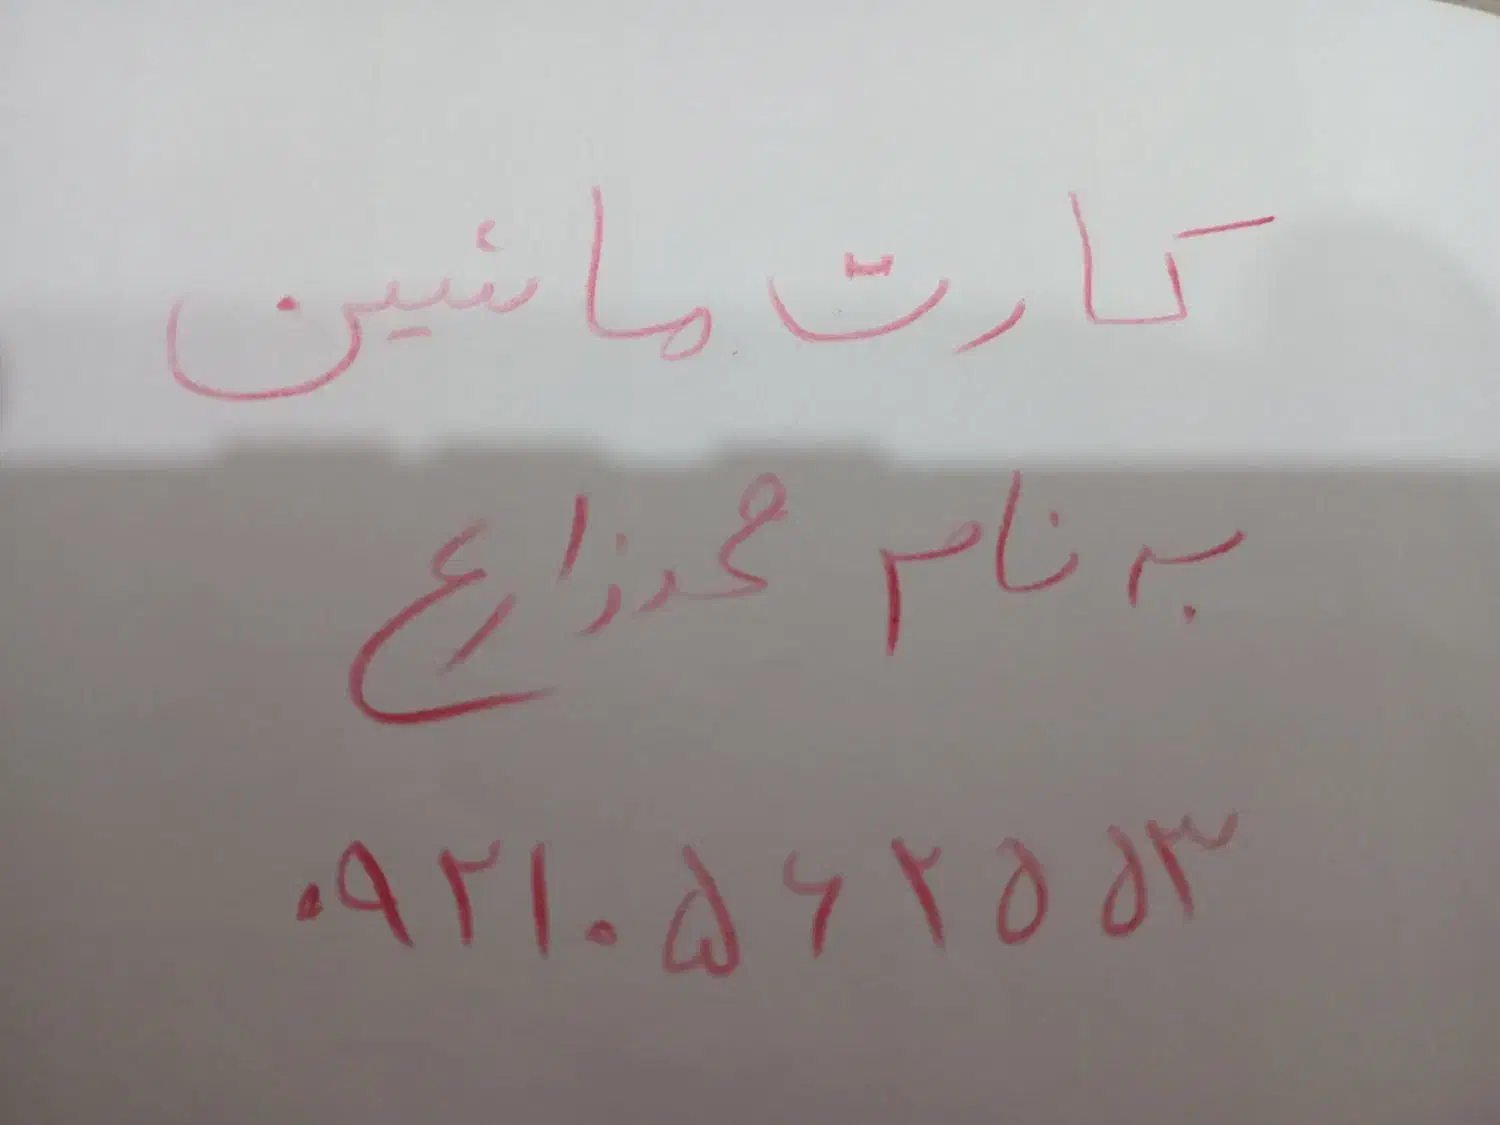 کارت ماشین
به نام محمد زارع
۰۹۲۱۰۵۶۲۵۵۳